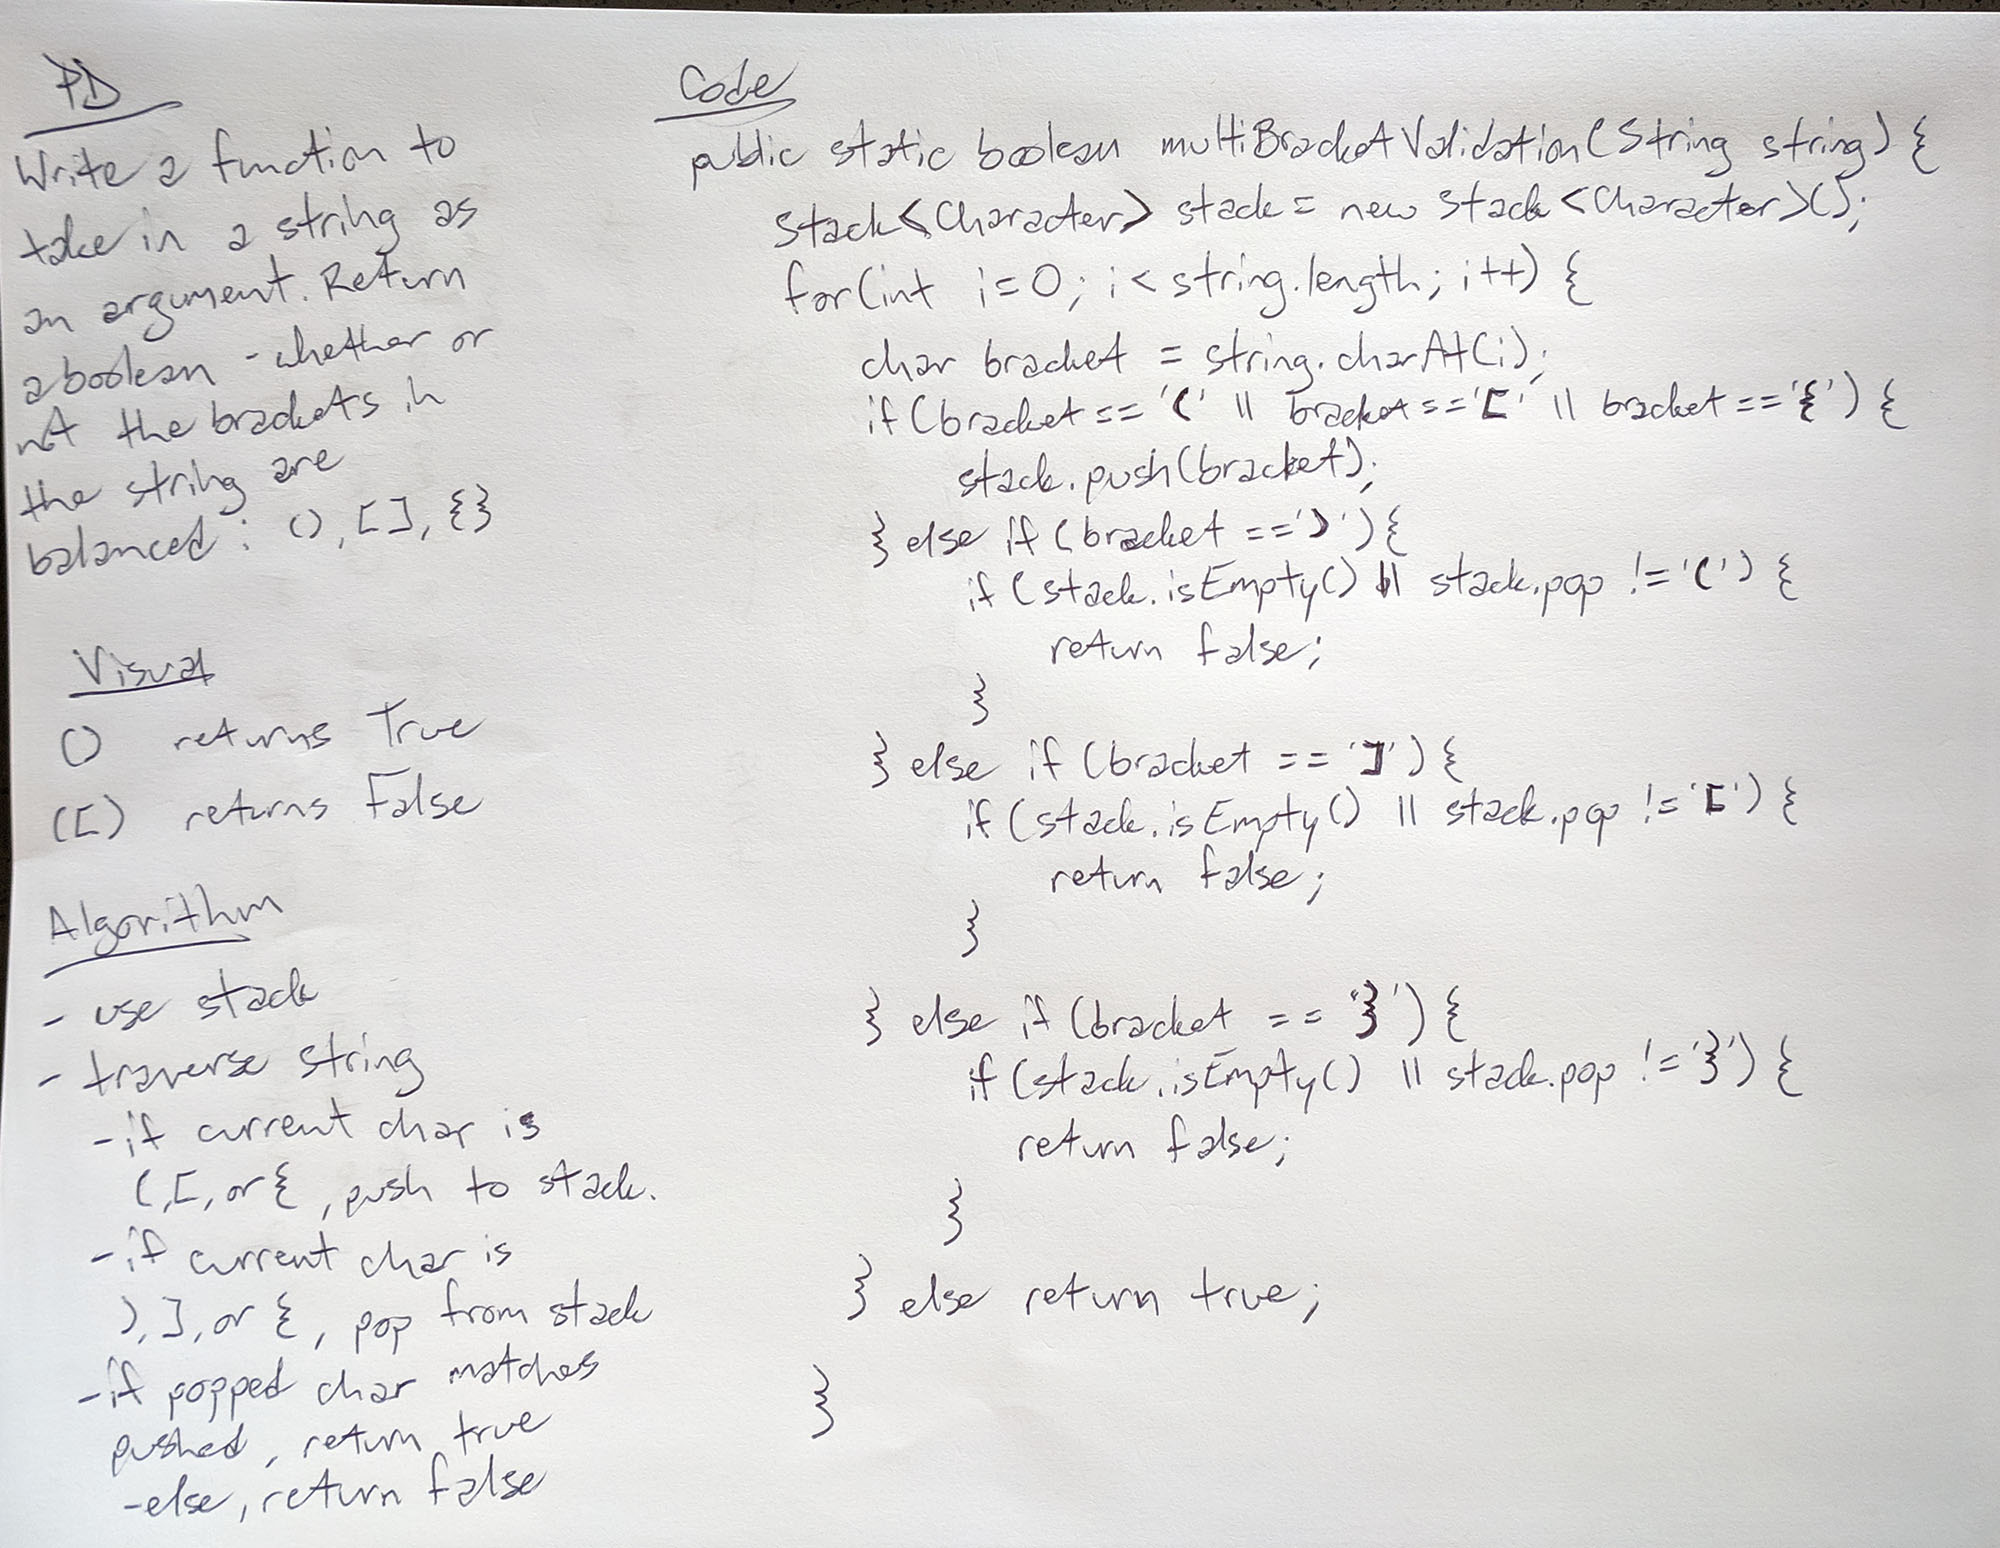 PD
Write a function to
take in a string as
an argument. Return
a boolean - whether or
not the brackets in
the string are
balanced: (), [], {}
Visual
() returns True
([) returns False
Algorithm
- use stack
- traverse string
- if current char is
(, [, or {, push to stack.
- if current char is
), ], or {, pop from stack
- if popped char matches
pushed, return true
- else, return false
Code
public static boolean multiBracketValidation(String string) {
Stack<Character> stack = new Stack<Character>();
for(int i=0; i< string.length; i++) {
char bracket = string.charAt(i);
if (bracket == '(' || bracket == '[' || bracket == '{') {
stack.push(bracket);
} else if (bracket == ')') {
if (stack.isEmpty() || stack.pop != '(') {
return false;
}
} else if (bracket == ']') {
if (stack.isEmpty() || stack.pop != '[') {
return false;
}
} else if (bracket == '}') {
if (stack.isEmpty() || stack.pop != '}') {
return false;
}
} else return true;
}